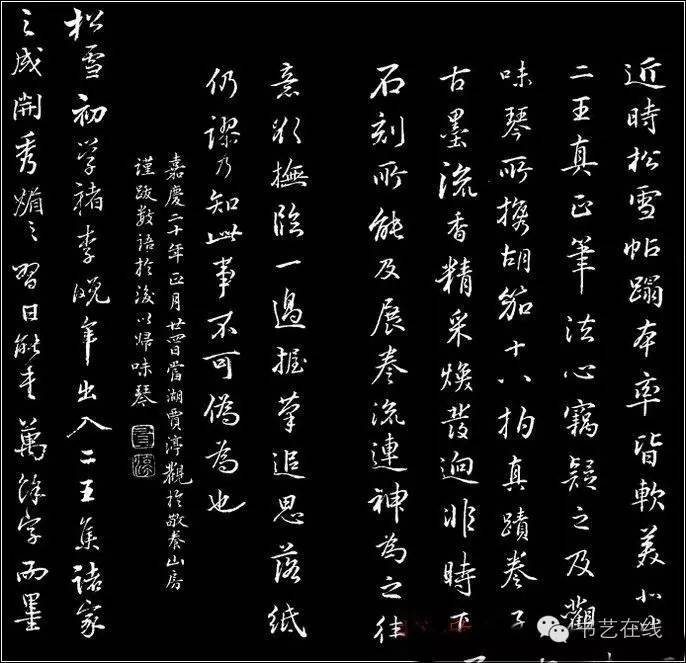 近時松雪帖蹋本率皆軟美
二王真正筆法心竊疑之及觀
味琴所攜胡笳十八拍真蹟卷子
古墨流香精采煥發迥非時下
石刻所能及展卷流連神為之往
意欲撫臨一過握筆追思落紙
仍謬乃知此事不可偽為也
嘉慶二十年正月廿四日當湖賈淳觀於敬養山房
謹跋數語於後以歸味琴
松雪初学褚李晚年出入二王集諸家
之成開秀媚之習日能書萬餘字而墨
书艺在线